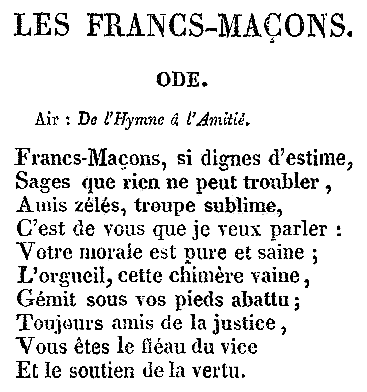 LES FRANCS-MAÇONS.
ODE.
Air : De l'Hymne à l'Amitié.
Francs-Maçons, si dignes d'estime,
Sages que rien ne peut troubler,
Amis zélés, troupe sublime,
C'est de vous que je veux parler :
Votre morale est pure et saine ;
L'orgueil, cette chimère vaine,
Gémit sous vos pieds abattu ;
Toujours amis de la justice,
Vous êtes le fléau du vice
Et le soutien de la vertu.